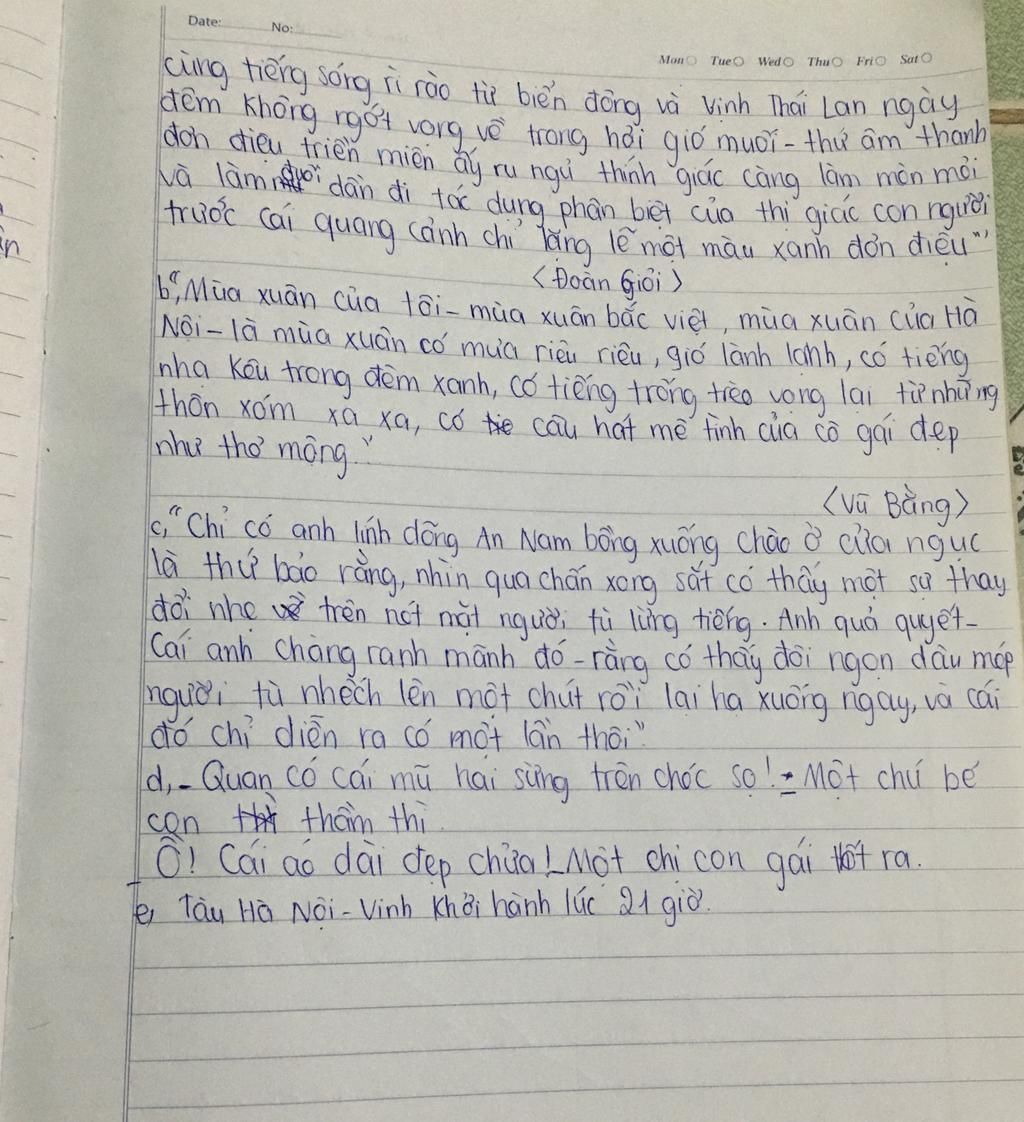 Date: No:
Mon Tue Wed Thu Fri Sat
cùng tiếng sóng rì rào từ biển đông và Vịnh Thái Lan ngày
đêm không ngớt vọng về trong hơi gió muối - thứ âm thanh
đơn điệu triền miên ấy ru ngủ thính giác càng làm mòn mỏi
và làm đuối dần đi tác dụng phân biệt của thị giác con người
trước cái quang cảnh chỉ lặng lẽ một màu xanh đơn điệu"
<Đoàn Giỏi>
b, "Mùa xuân của tôi - mùa xuân bắc việt, mùa xuân của Hà
Nội - là mùa xuân có mưa riêu riêu, gió lành lạnh, có tiếng
nhạ kêu trong đêm xanh, có tiếng trống trèo vọng lại từ những
thôn xóm xa xa, có câu hát mê tình của cô gái đẹp
như thơ mộng."
<Vũ Bằng>
c, "Chỉ có anh lính dõng An Nam bồng xuống chào ở cửa ngục
là thứ bảo rằng, nhìn qua chấn xong sắt có thấy một sự thay
đổi nhẹ trên nét mặt người tù lừng tiếng. Anh quả quyết -
Cái anh chàng ranh mãnh đó - rằng có thấy đôi ngọn dâu mép
người tù nhếch lên một chút rồi lại hạ xuống ngay, và cái
đó chỉ diễn ra có một lần thôi".
d, - Quan có cái mũ hai sừng trên chóc sọ! - Một chú bé
con thầm thì.
- Ồ! Cái áo dài đẹp chửa! - Một chị con gái thốt ra.
e, Tàu Hà Nội - Vinh khởi hành lúc 21 giờ.